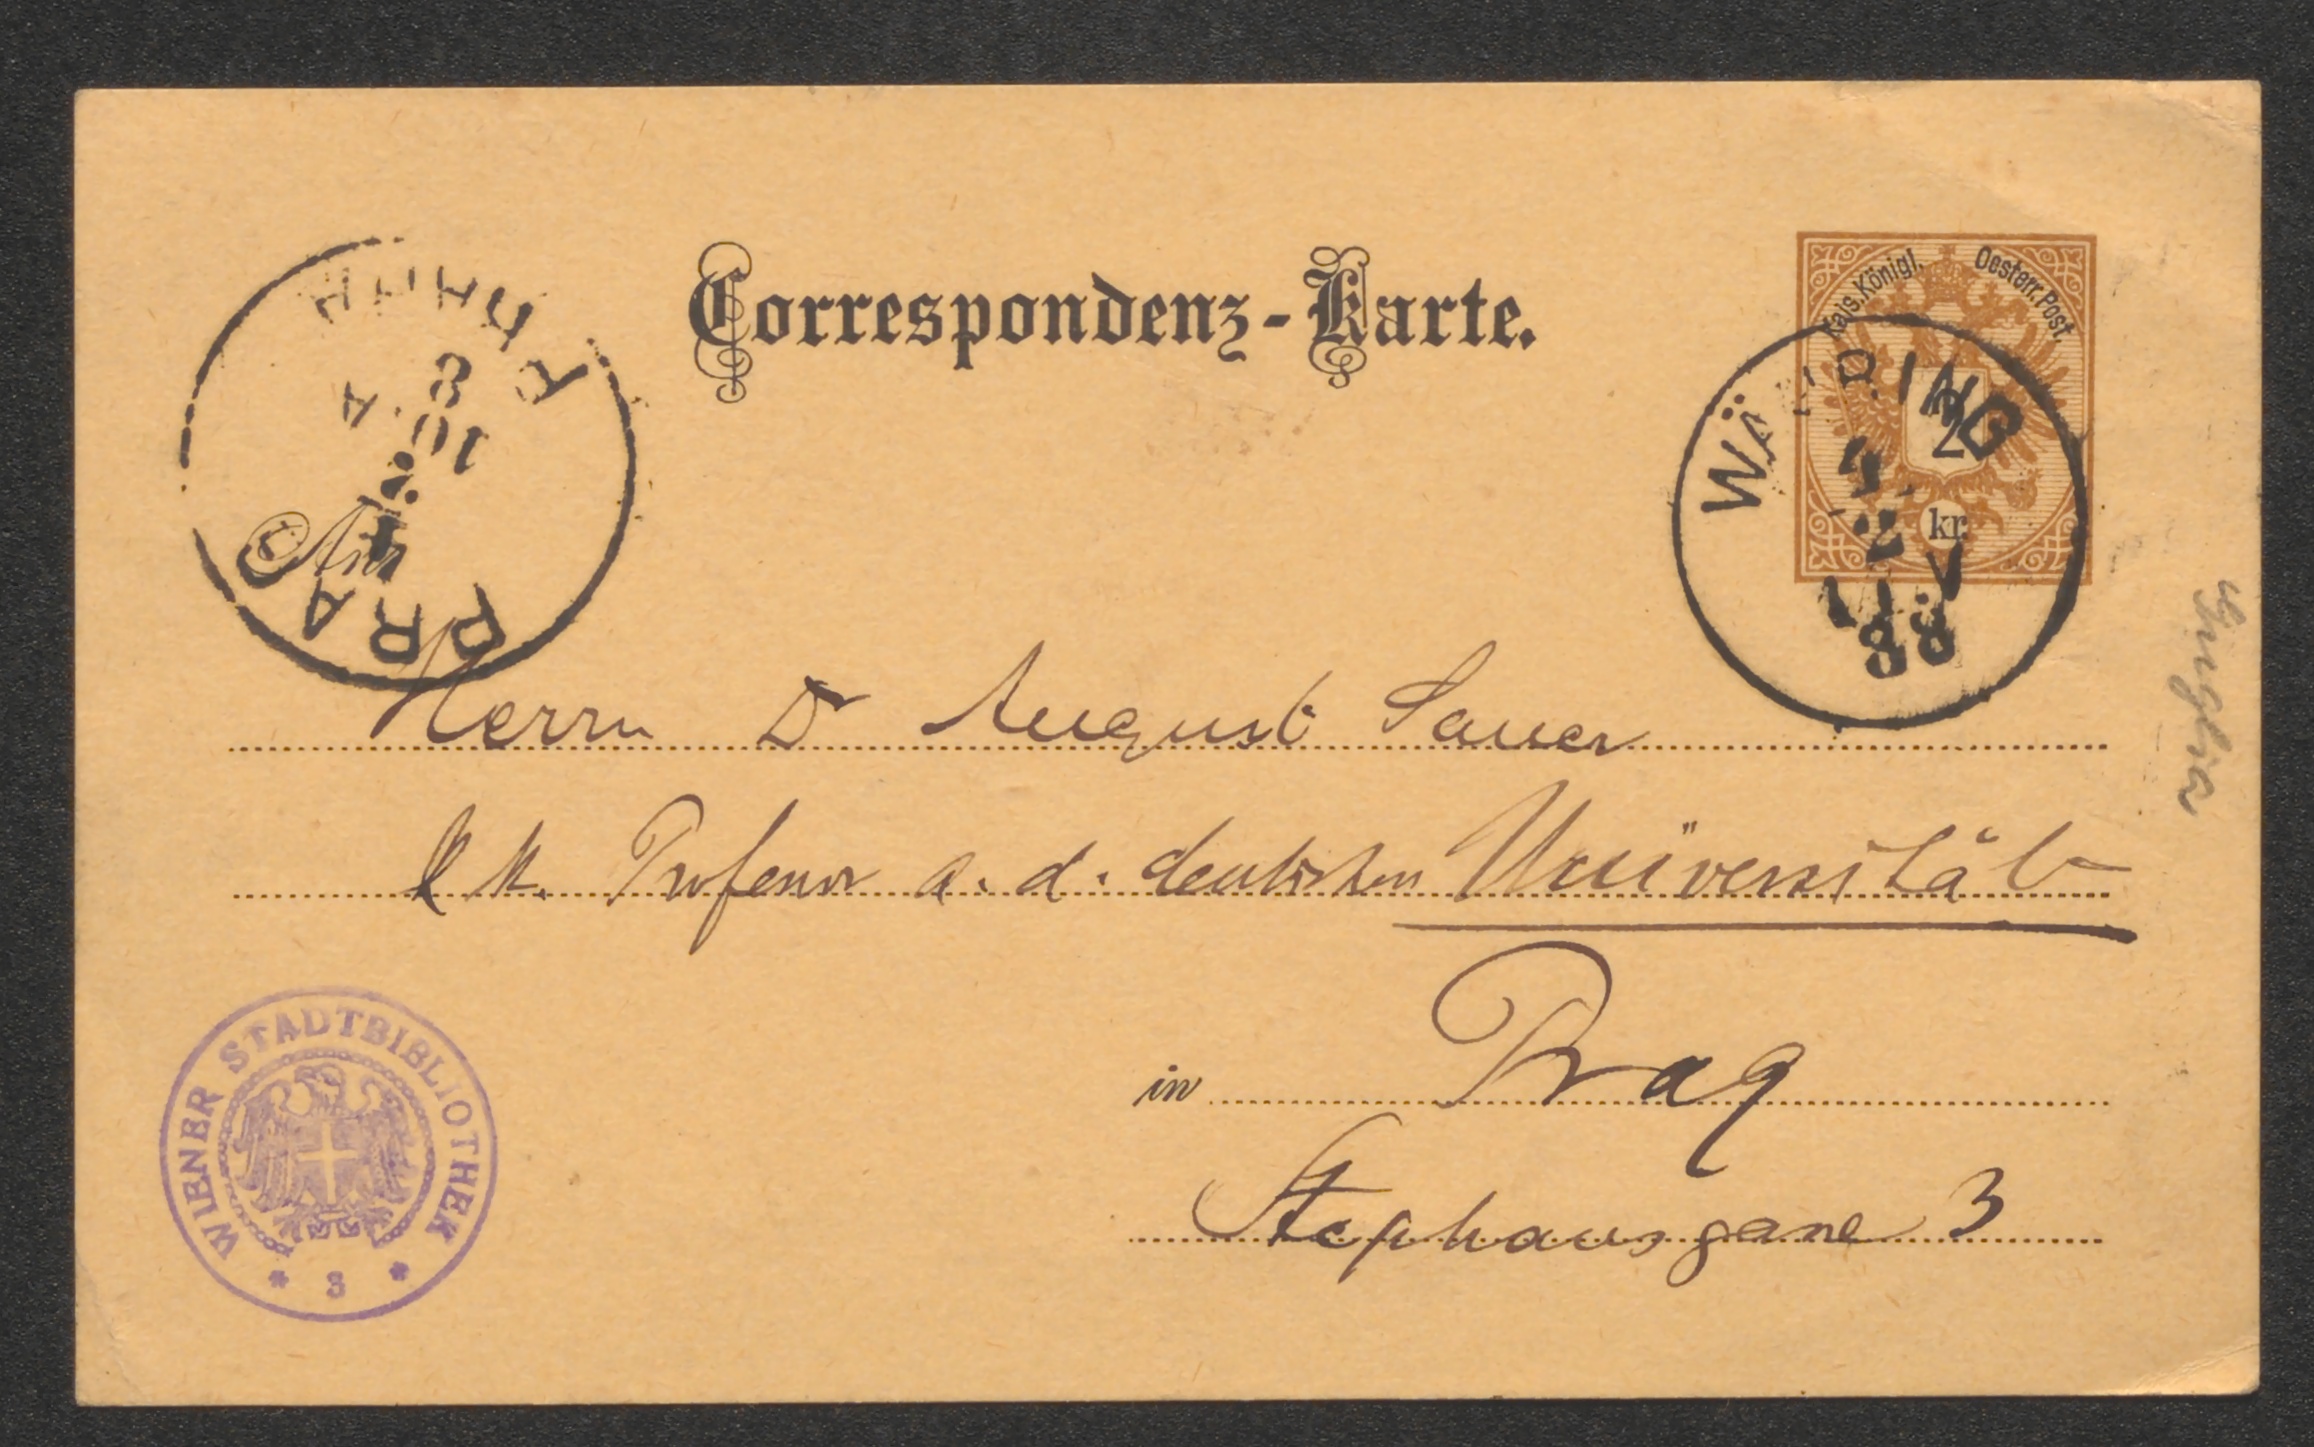 Correspondenz-Karte.
Kais. Königl. Oesterr. Post.
2
kr.
WÄHRING
2
11
88
PRAG
PRAHA
10
8
An
Herrn Dr August Sauer
k k. Professor a. d. deutschen Universität
in Prag
Stephansgasse 3
WIENER STADTBIBLIOTHEK
* 3 *